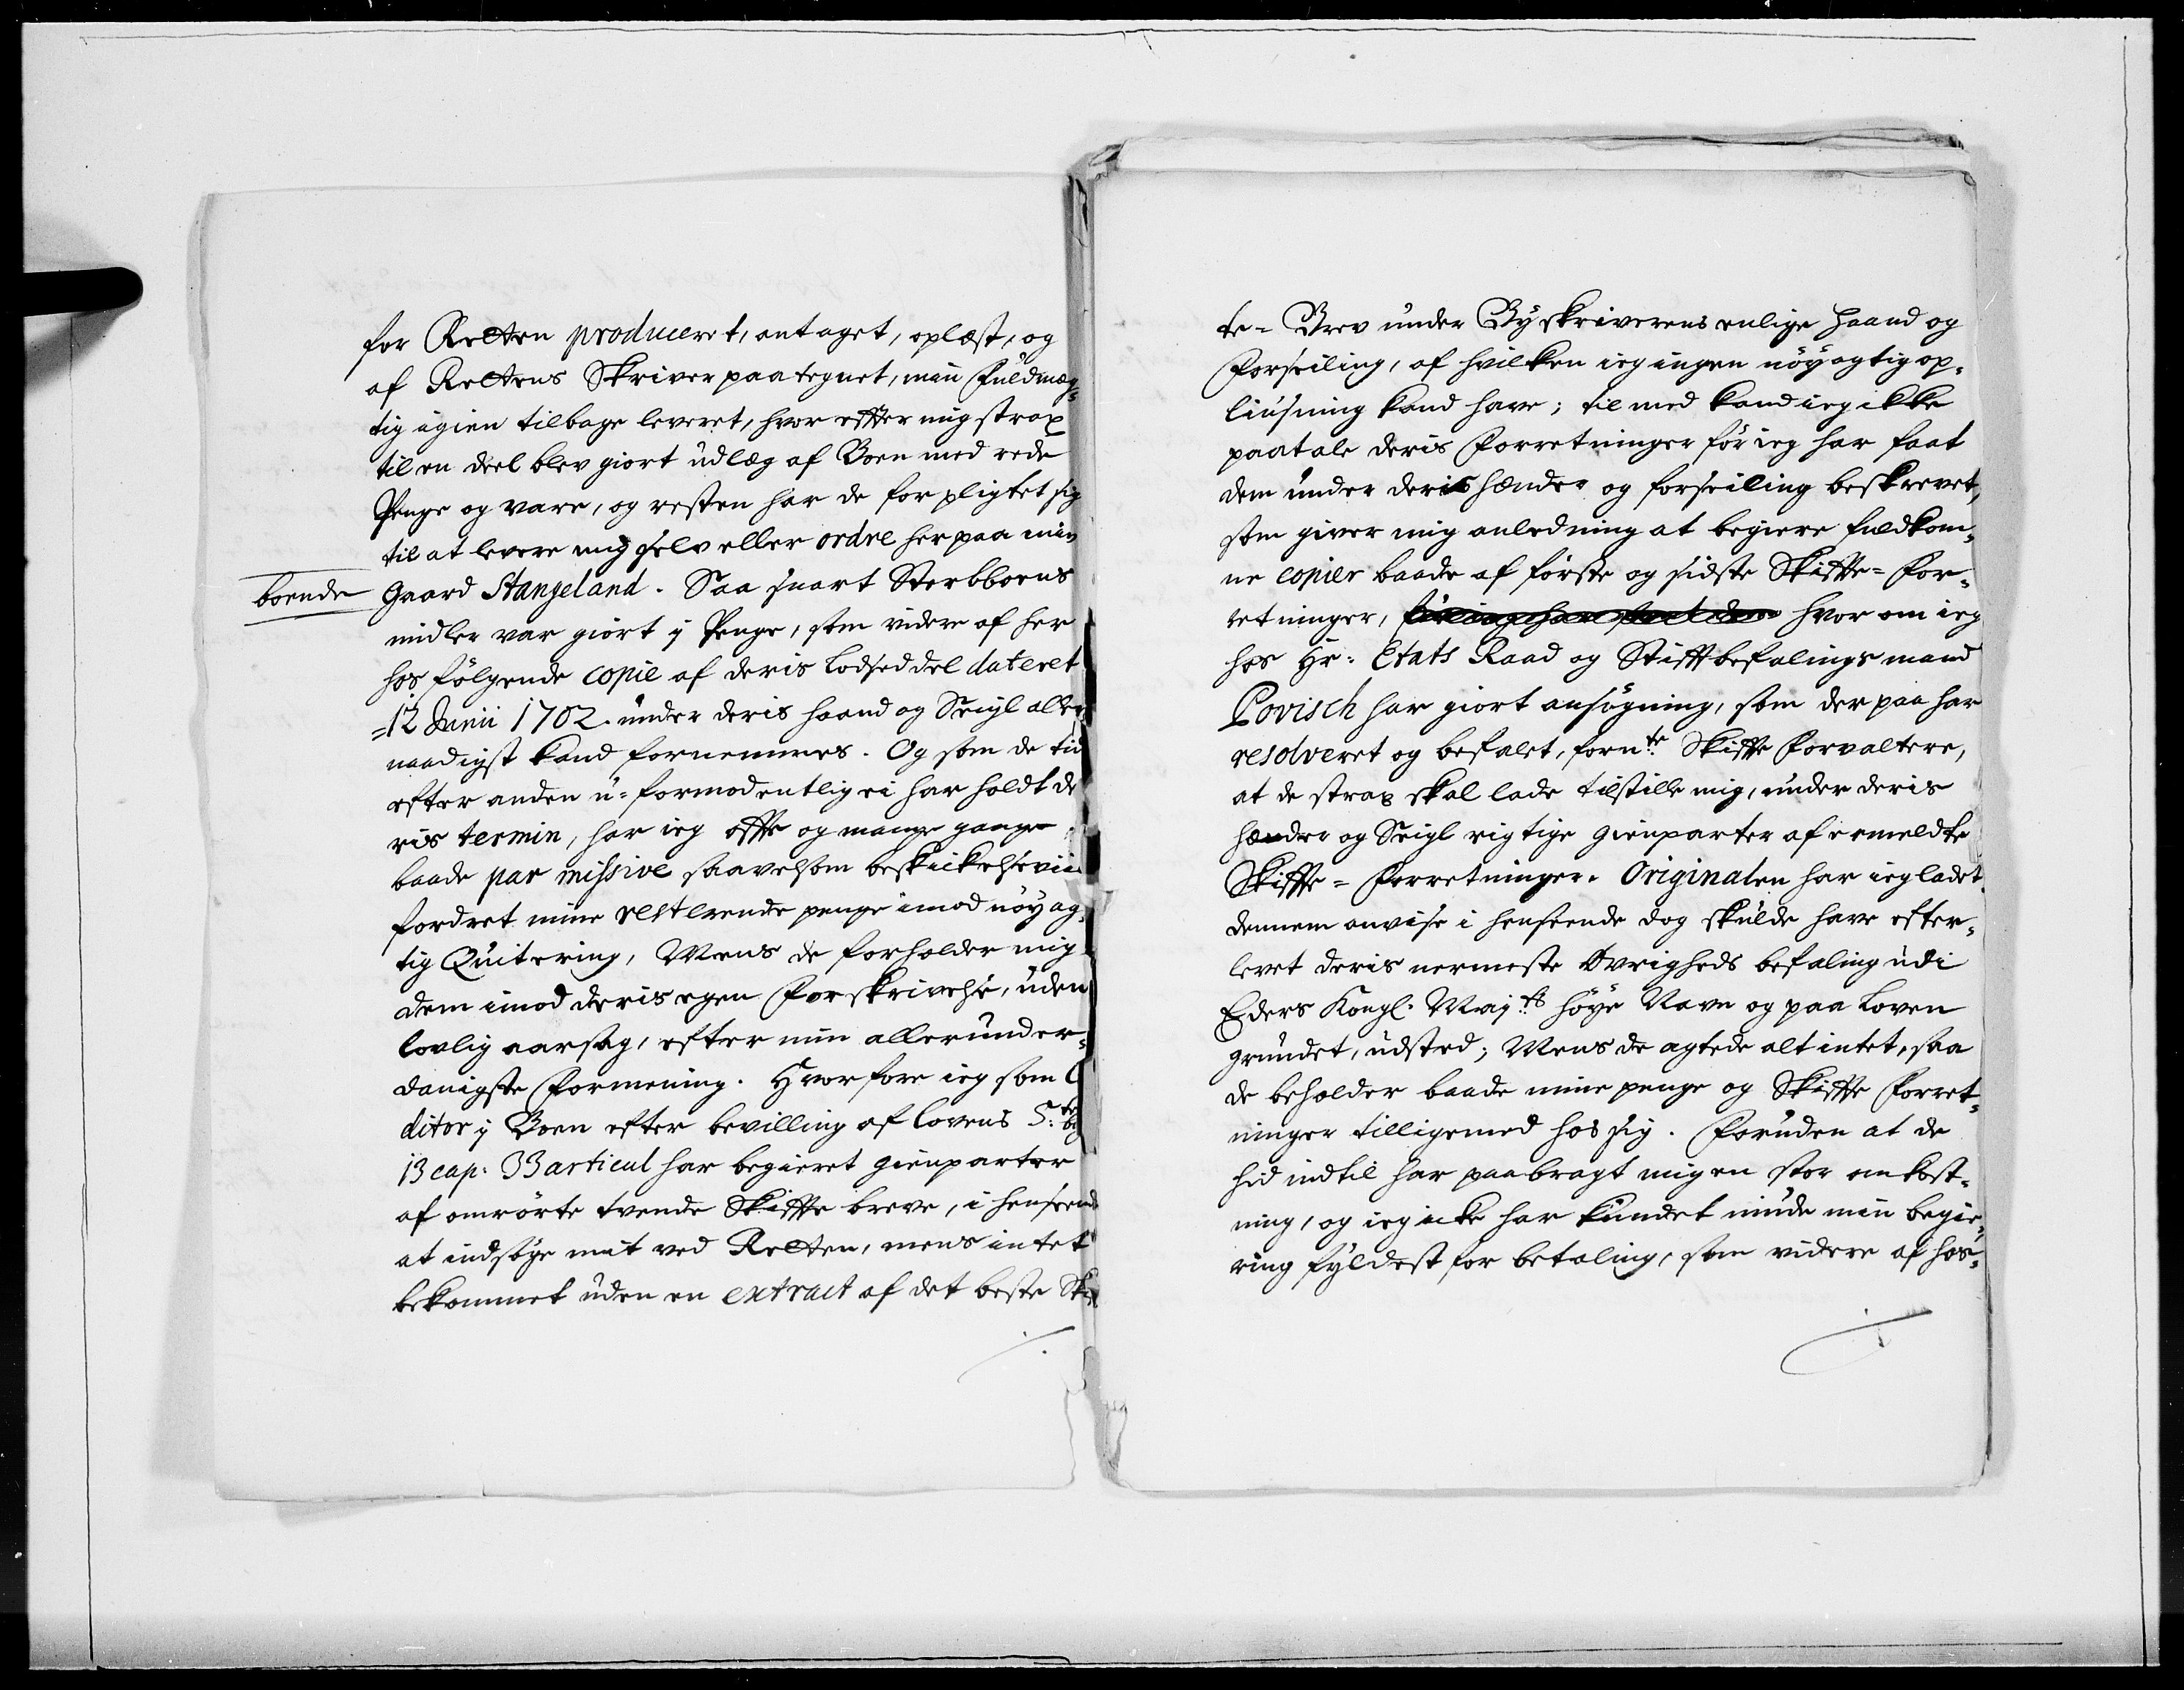 for Retten produceret, antaget, oplæst, og
af Rettens Skriver paategnet, min Fuldmæg=
tig igien tilbage leveret, hvor effter mig strax
til en deel blev giort udlæg af Boen med rede
Penge og vare, og resten har de forpligtet sig
til at levere mig selv eller ordre her paa min
boende Gaard Stangeland. Saa snart Sterbboens
midler var giort y Penge, som videre af her
hos følgende copie af deris Lodseddel dateret
=12 Junii 1702. under deris haand og Seigl aller
naadigst kand fornemmes. Og som de tid
efter anden u=formodentlig ei har holdt de
ris termin, har ieg offte og mange gange
baade par missive saavelsom beskickelse vii
fordret mine resterende penge imod nøyag=
tig Quitering, Mens de forholder mig
dem imod deris egen Forskrivelse, uden
lovlig aarsag, efter min allerunder=
danigste Formening. Hvorfore ieg som C
ditor y Boen efter bevilling af lovens 5.te bog
13 cap. 33 articul har begieret gienparter
af omrørte tvende Skiffte breve, i henseende
at indsøge mit ved Retten, mens intet
bekommet uden en extract af det beste Skif
te= Brev under Byskriverens enlige haand og
Forseiling, af hvilken ieg ingen nøyagtig op=
liusning kand have; til med kand ieg ikke
paatale deris Forretninger før ieg har faat
dem under deris hænder og forseiling beskrevet,
som giver mig anledning at begiere fuldkom=
ne copier baade af første og sidste Skiffte= For=
retninger, før ieg har faat dem hvor om ieg
hos Hr. Etats Raad og Stifftbefalings mand
Povisch har giort ansøgning, som der paa har
resolveret og befalet, forn.te Skiffte Forvaltere,
at de strax skal lade tilstille mig, under deris
hænder og Seigl rigtige gienparter af ermeldte
Skiffte= Forretninger. Originalen har ieg ladet
dennem anvise i henseende dog skulde have efter=
levet deris nermeste Øvrigheds befaling udi
Eders Kongl. May.ts høye Navn og paa Loven
grundet, udsted; Mens de agtede alt intet, saa
de beholder baade mine penge og Skiffte Forret=
ninger tilligemed hos sig. Foruden at de
hid indtil har paabragt mig en stor ombkost=
ning, og ieg icke har kundet niude min begie=
ring fyldest for betaling, som videre af hos=